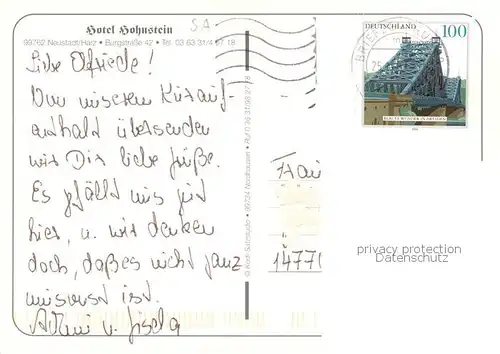 Hotel Hohnstein
99762 Neustadt/Harz • Burgstraße 42 • Tel. 03 63 31/4 67 18
Liebe Elfriede!
Von unserem Kurauf-
enthalt übersenden
wir Dir liebe Grüße.
Es gefällt uns gut
hier, u. wir denken
doch, daß es nicht ganz
umsonst ist.
u. Gisela
© Kodi-Satzstudio • 99724 Nordhausen •
DEUTSCHLAND
100
BLAUES WUNDER IN DRESDEN
BRIEF
25
14771
privacy protection
Datenschutz